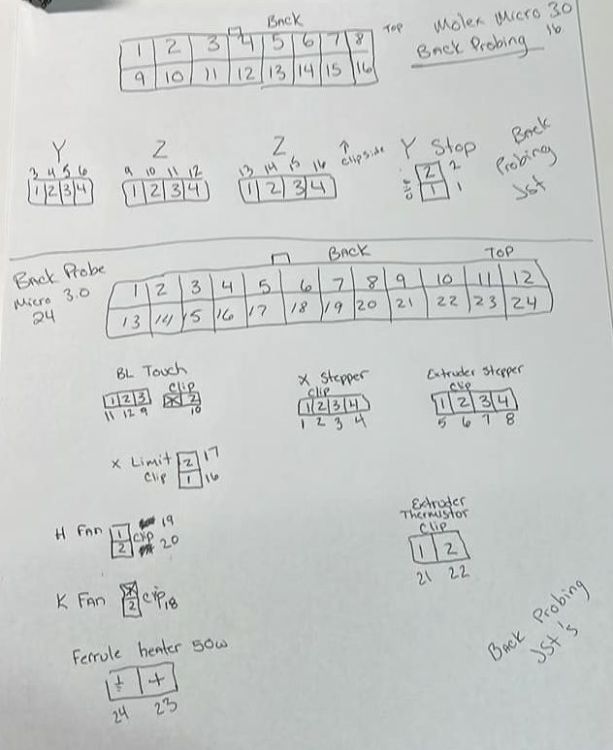 Back
Top
Molex Micro 3.0
16
Back Probing
1 2 3 4 5 6 7 8
9 10 11 12 13 14 15 16
Y
3 4 5 6
1 2 3 4
Z
9 10 11 12
1 2 3 4
Z
13 14 15 16
1 2 3 4
↑
clipside
Y Stop
clip
2 2
1 1
Back
Probing
JST
Back Probe
Micro 3.0
24
BACK
TOP
1 2 3 4 5 6 7 8 9 10 11 12
13 14 15 16 17 18 19 20 21 22 23 24
BL Touch
1 2 3
11 12 9
clip
X 2
10
X Stepper
clip
1 2 3 4
1 2 3 4
Extruder Stepper
clip
1 2 3 4
5 6 7 8
X Limit
clip
2 17
1 16
H FAN
1 19
clip
2 20
Extruder
Thermistor
clip
1 2
21 22
K FAN
X
2
clip 18
Ferrule heater 50w
+
24 23
Back Probing
JST's